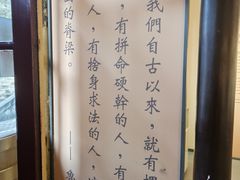 我們自古以來，就有埋
，有拼命硬幹的人，有
人，有捨身求法的人，
的脊梁。——魯